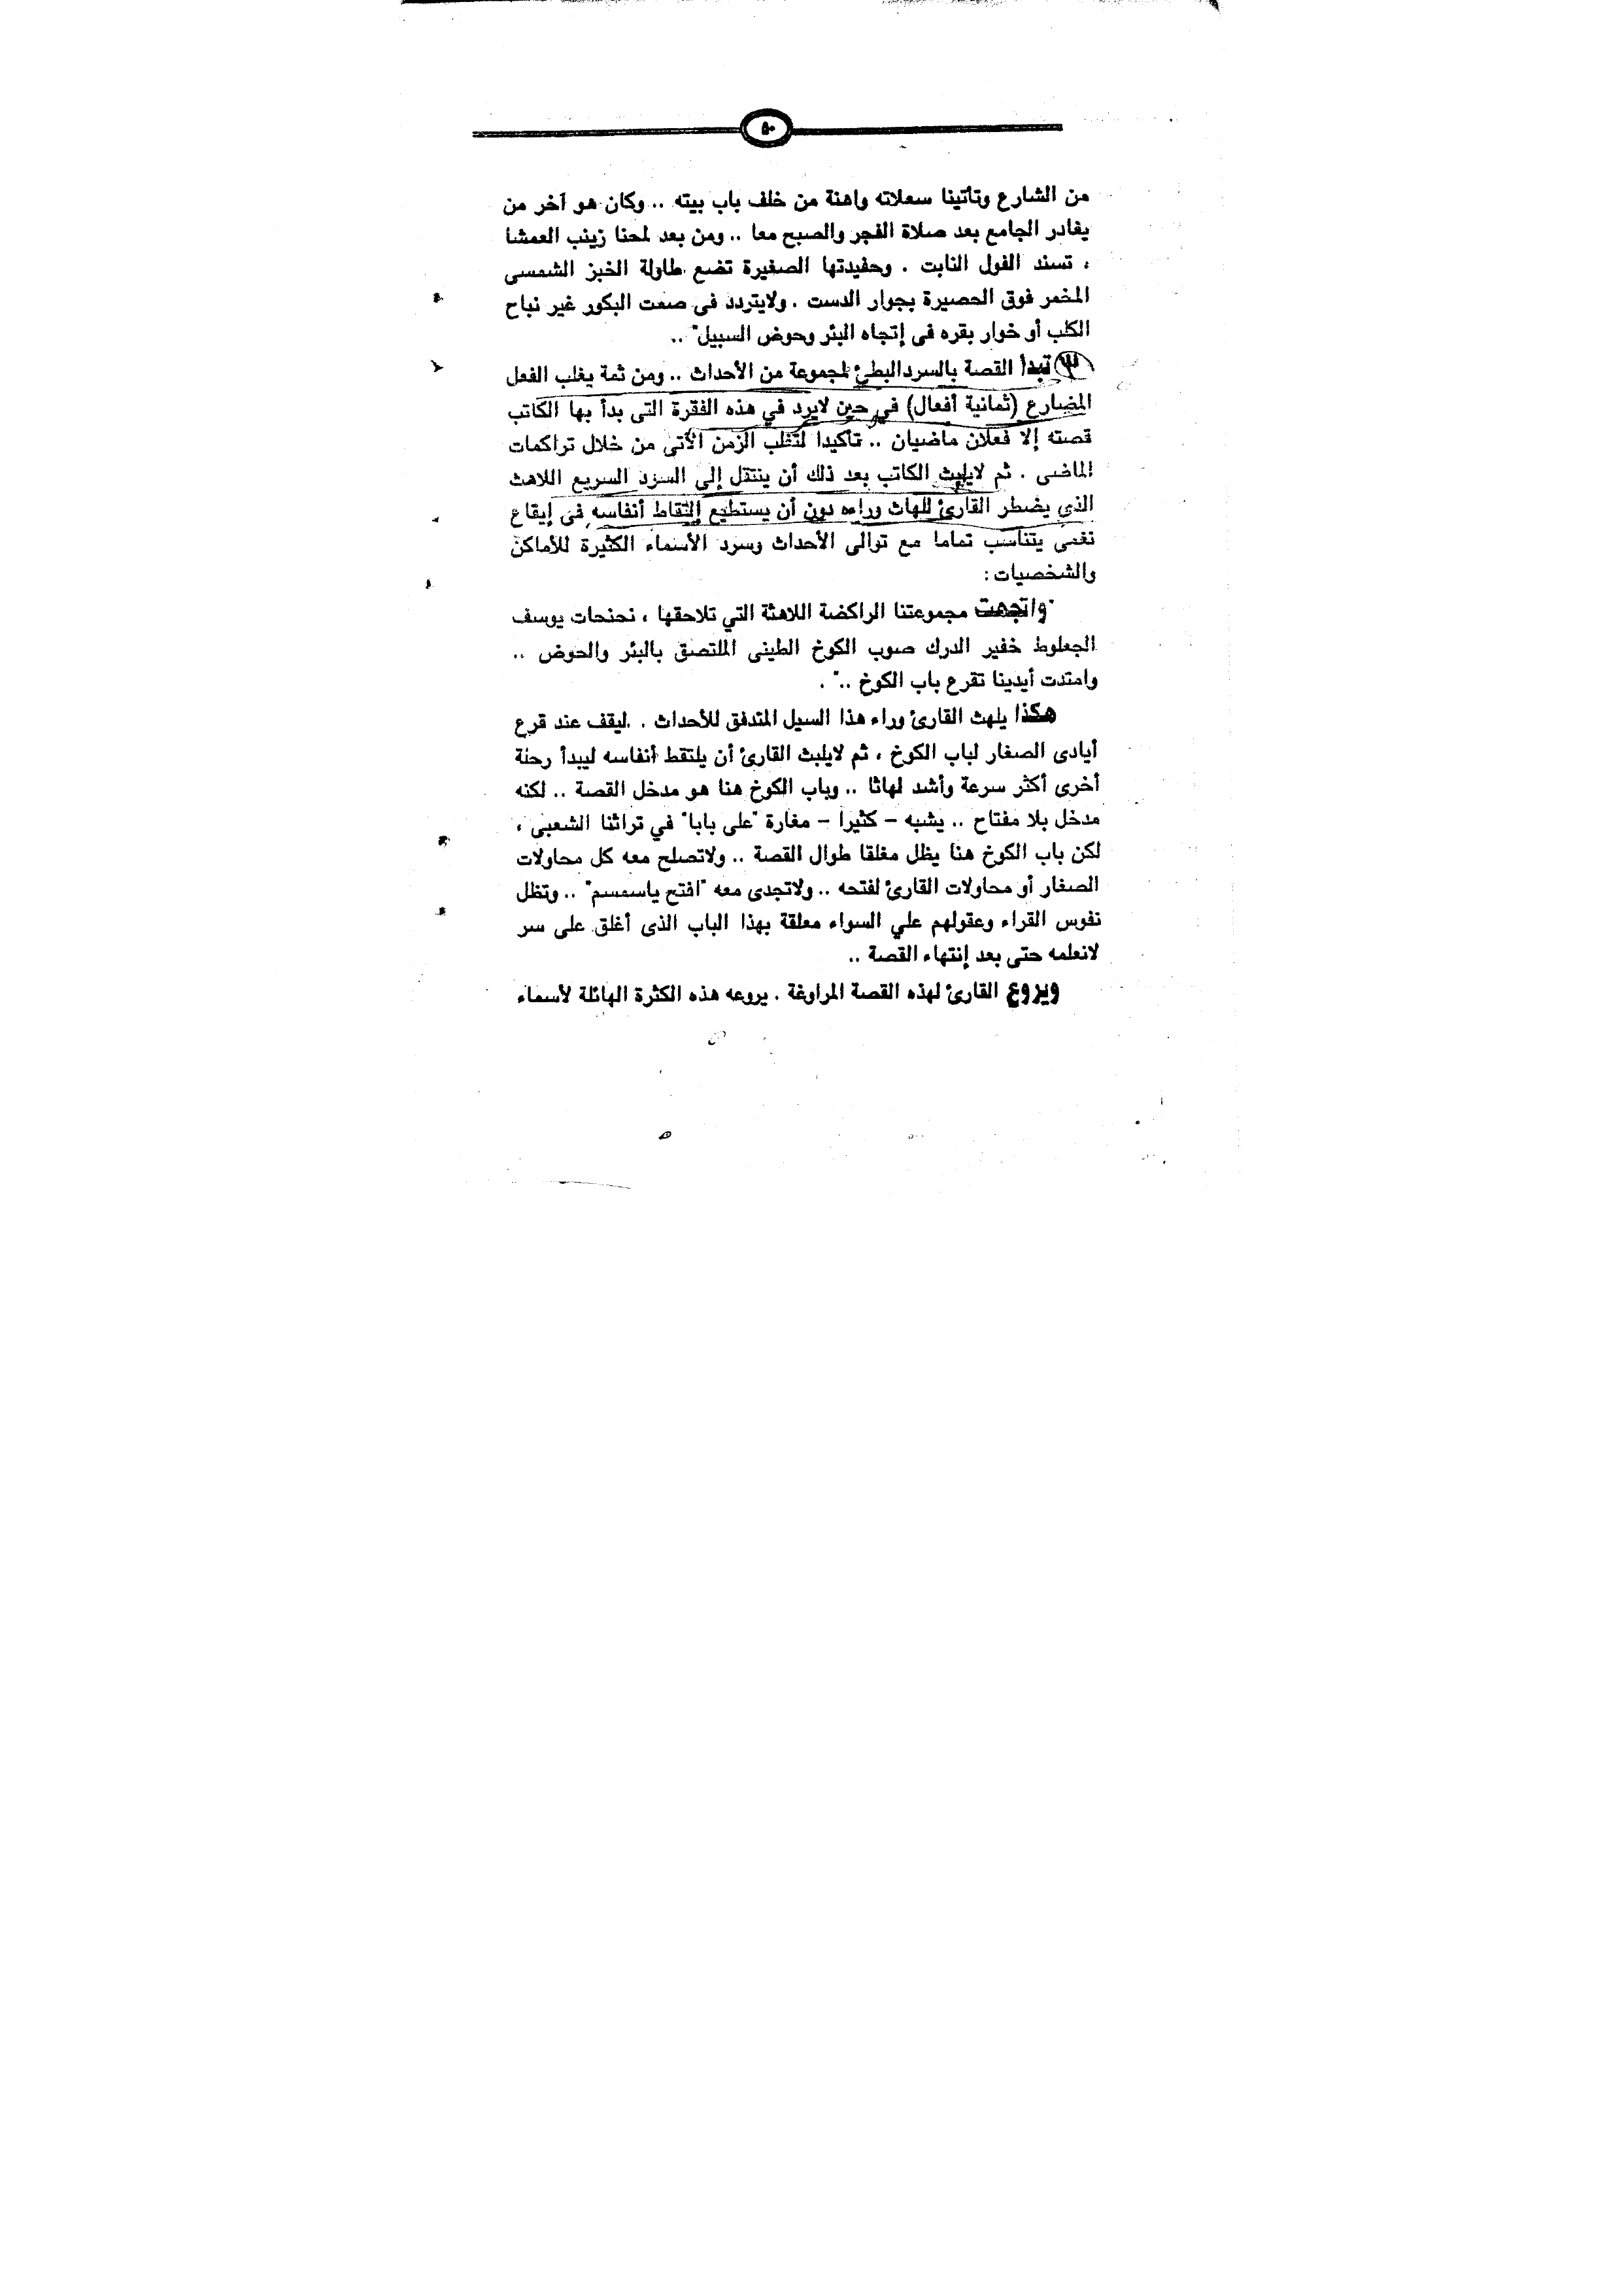 ٥٠
من الشارع وتأتينا سعلاته واهنة من خلف باب بيته .. وكان هو آخر من
يغادر الجامع بعد صلاة الفجر والصبح معا .. ومن بعد لمحنا زينب العمشا
، تسند الفول النابت . وحفيدتها الصغيرة تضع طاولة الخبز الشمسى
المخمر فوق الحصيرة بجوار الدست . ولايتردد فى صمت البكور غير نباح
الكلب أو خوار بقره فى إتجاه البئر وحوض السبيل" ..
٣ تبدأ القصة بالسردالبطئ لمجموعة من الأحداث .. ومن ثمة يغلب الفعل
المضارع (ثمانية أفعال) في حين لايرد في هذه الفقرة التى بدأ بها الكاتب
قصته إلا فعلان ماضيان .. تأكيدا لتغلب الزمن الآتى من خلال تراكمات
الماضى . ثم لايلبث الكاتب بعد ذلك أن ينتقل إلى السرد السريع اللاهث
الذي يضطر القارئ للهاث وراءه دون أن يستطيع إلتقاط أنفاسه فى إيقاع
نغمى يتناسب تماما مع توالى الأحداث وسرد الأسماء الكثيرة للأماكن
والشخصيات :
"واتجهت مجموعتنا الراكضة اللاهثة التي تلاحقها ، نحنحات يوسف
الجعلوط خفير الدرك صوب الكوخ الطينى الملتصق بالبئر والحوض ..
وامتدت أيدينا تقرع باب الكوخ .." .
هكذا يلهث القارئ وراء هذا السيل المتدفق للأحداث . ليقف عند قرع
أيادى الصغار لباب الكوخ ، ثم لايلبث القارئ أن يلتقط أنفاسه ليبدأ رحلة
أخرى أكثر سرعة وأشد لهاثا .. وباب الكوخ هنا هو مدخل القصة .. لكنه
مدخل بلا مفتاح .. يشبه – كثيرا – مغارة "على بابا" في تراثنا الشعبى ،
لكن باب الكوخ هنا يظل مغلقا طوال القصة .. ولاتصلح معه كل محاولات
الصغار أو محاولات القارئ لفتحه .. ولاتجدى معه "افتح ياسمسم" .. وتظل
نفوس القراء وعقولهم علي السواء معلقة بهذا الباب الذى أغلق على سر
لانعلمه حتى بعد إنتهاء القصة ..
ويروع القارئ لهذه القصة المراوغة . يروعه هذه الكثرة الهائلة لأسماء